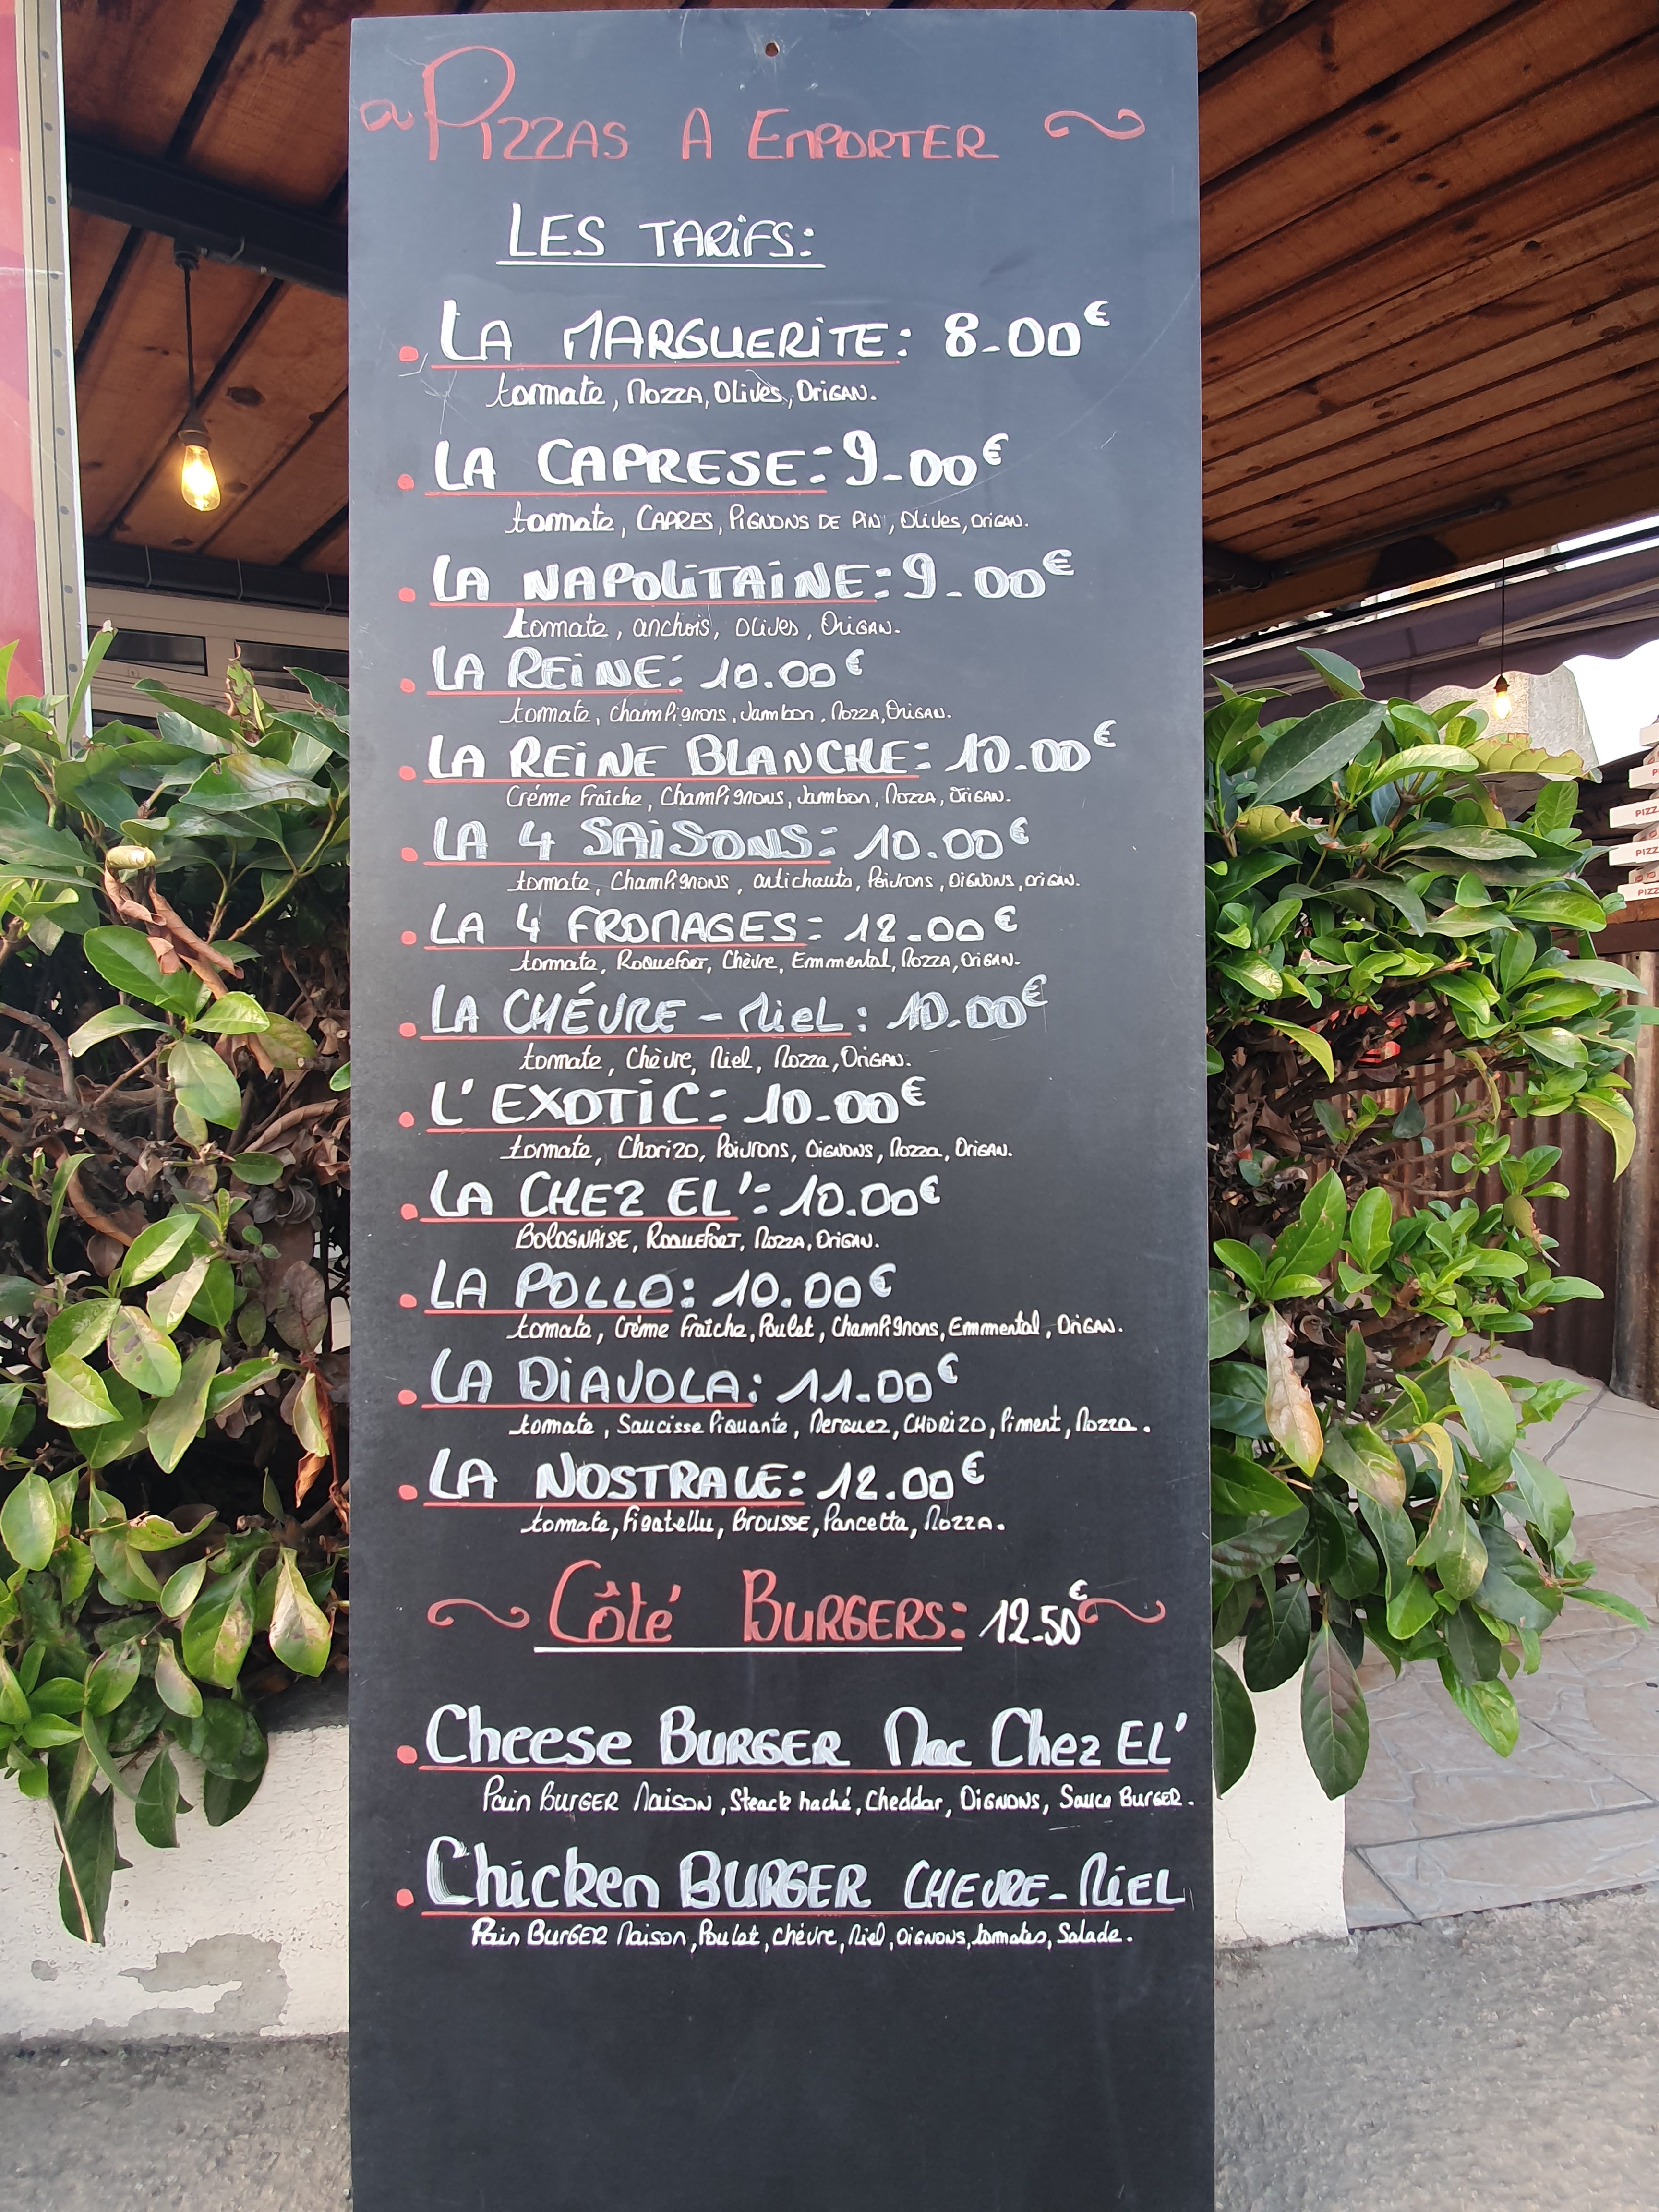 PIZZAS A EMPORTER
LES TARIFS:
LA MARGUERITE: 8-00€
tomate, MOZZA, Olives, ORIGAN.
LA CAPRESE: 9-00€
tomate, CAPRES, PIGNONS DE PIN, Olives, ORIGAN.
LA NAPOLITAINE: 9-00€
tomate, anchois, OLIVES, ORIGAN.
LA REINE: 10.00€
tomate, Champignons, Jambon, MOZZA, ORIGAN.
LA REINE BLANCHE: 10.00€
Créme Fraîche, Champignons, Jambon, MOZZA, ORIGAN.
LA 4 SAISONS: 10.00€
tomate, Champignons, artichauts, Poivrons, OIGNONS, ORIGAN.
LA 4 FROMAGES: 12.00€
tomate, ROQUEFORT, Chèvre, Emmental, MOZZA, ORIGAN.
LA CHÉVRE - MIEL: 10.00€
tomate, Chèvre, Miel, Mozza, ORIGAN.
L'EXOTIC: 10-00€
tomate, Chorizo, Poivrons, OIGNONS, Mozza, ORIGAN.
LA CHEZ EL': 10.00€
BOLOGNAISE, ROQUEFORT, MOZZA, ORIGAN.
LA POLLO: 10.00€
tomate, Crème Fraîche, Poulet, Champignons, Emmental, ORIGAN.
LA DIAVOLA: 11.00€
tomate, Saucisse Piquante, Merguez, CHORIZO, Piment, Mozza.
LA NOSTRALE: 12.00€
tomate, Figatellu, BROUSSE, Pancetta, MOZZA.
Côté BURGERS: 12.50€
Cheese BURGER Mac Chez EL'
Pain BURGER MAISON, Steack haché, Cheddar, OIGNONS, Sauce BURGER.
Chicken BURGER CHEVRE-MIEL
Pain BURGER Maison, Poulet, chévre, Miel, OIGNONS, tomates, Salade.
PIZZ
PIZZ
PIZZ